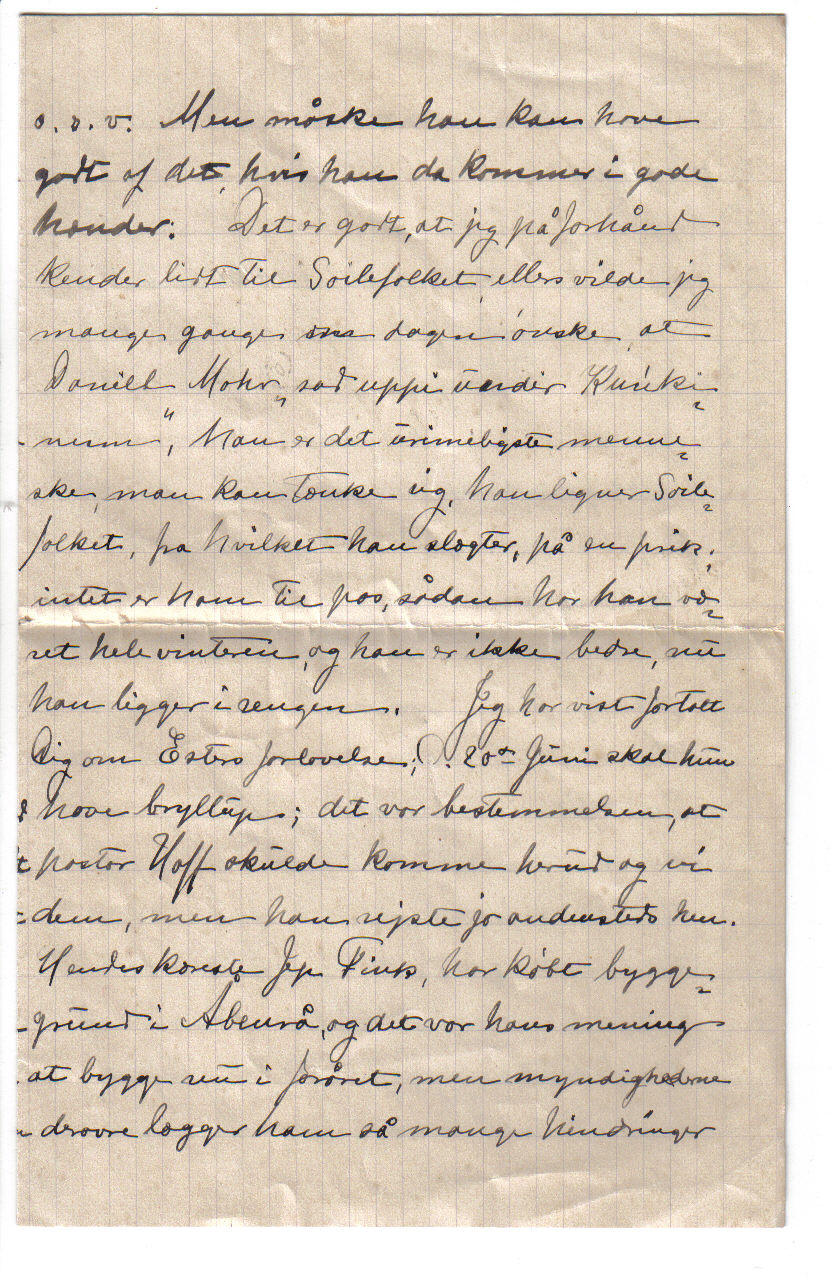 o. s. v. Men måske han kan have
godt af det, hvis han da kommer i gode
hænder. Det er godt, at jeg på forhånd
kender lidt til Söilefolket, ellers vilde jeg
mange gange om dagen önske, at
Daniel Mohr "sad uppi under
", han er det urimeligste menne-
ske, man kan tænke sig, han ligner Söile-
folket, fra hvilket han slægter, på en prik,
intet er ham til pas, sådan har han væ-
ret hele vinteren, og han er ikke bedre, nu
han ligger i sengen. Jeg har vist fortalt
Dig om Esters forlovelse; d. 20de Juni skal hun
have bryllup; det var bestemmelsen, at
pastor Hoff skulde komme herud og vi
dem, men han rejste jo andensteds hen.
Hendes kæreste Jep Fink, har købt bygge-
grund i Åbenrå, og det var hans mening
at bygge nu i foråret, men myndighederne
derovre lægger ham så mange hindringer